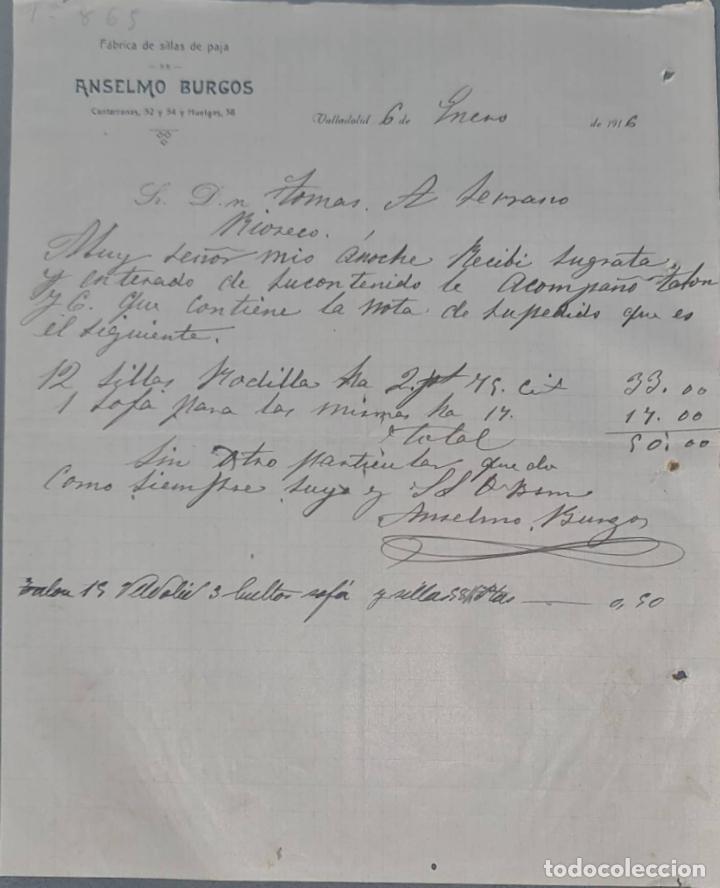 865
Fábrica de sillas de paja
DE
ANSELMO BURGOS
Canterranas, 32 y 34 y Huelgas, 38
Valladolid 6 de Enero de 1916
Sr. Dn Tomas. A Serrano
Rioseco.
Muy señor mio anoche Recibi sugrata
y enterado de sucontenido le Acompaño talon
y C. que contiene la Nota de supedido que es
el siguiente.
12 sillas Rodilla ha 2. pt 75. cit 33.00
1 sofá para las mismas ha 17. 17.00
total 50.00
Sin Otro particular queda
Como siempre suyo y SS
Anselmo Burgos
talon 15 3 bultos sofá y sillas 0,50
todocoleccion